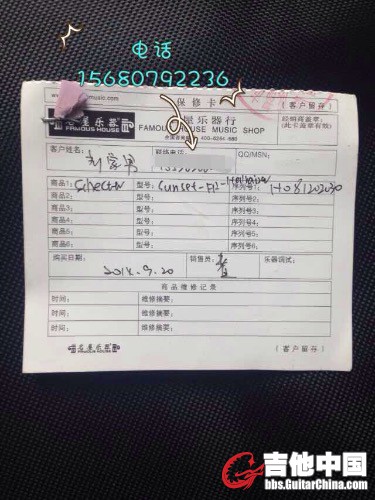 电话
15680792236
music.com
保修卡
【客户留存】
名屋乐器
FAMOUS HOUSE
屋乐器行
FAMOUS HOUSE MUSIC SHOP
400-6244-686
经销商盖章：
(此卡盖章有效)
客户姓名：
联络电话
QQ/MSN：
商品1：Schecter 型号：Sunset 序列号1：H08120230
商品2： 型号： 序列号2：
商品3： 型号： 序列号3：
商品4： 型号： 序列号4：
商品5： 型号： 序列号5：
商品6： 型号： 序列号6：
购买日期： 销售员： 乐器调试：
2014.9.20
商品维修记录
时间： 维修摘要：
时间： 维修摘要：
时间： 维修摘要：
名屋乐器
FAMOUS HOUSE
【客户留存】
吉他中国
bbs.GuitarChina.com